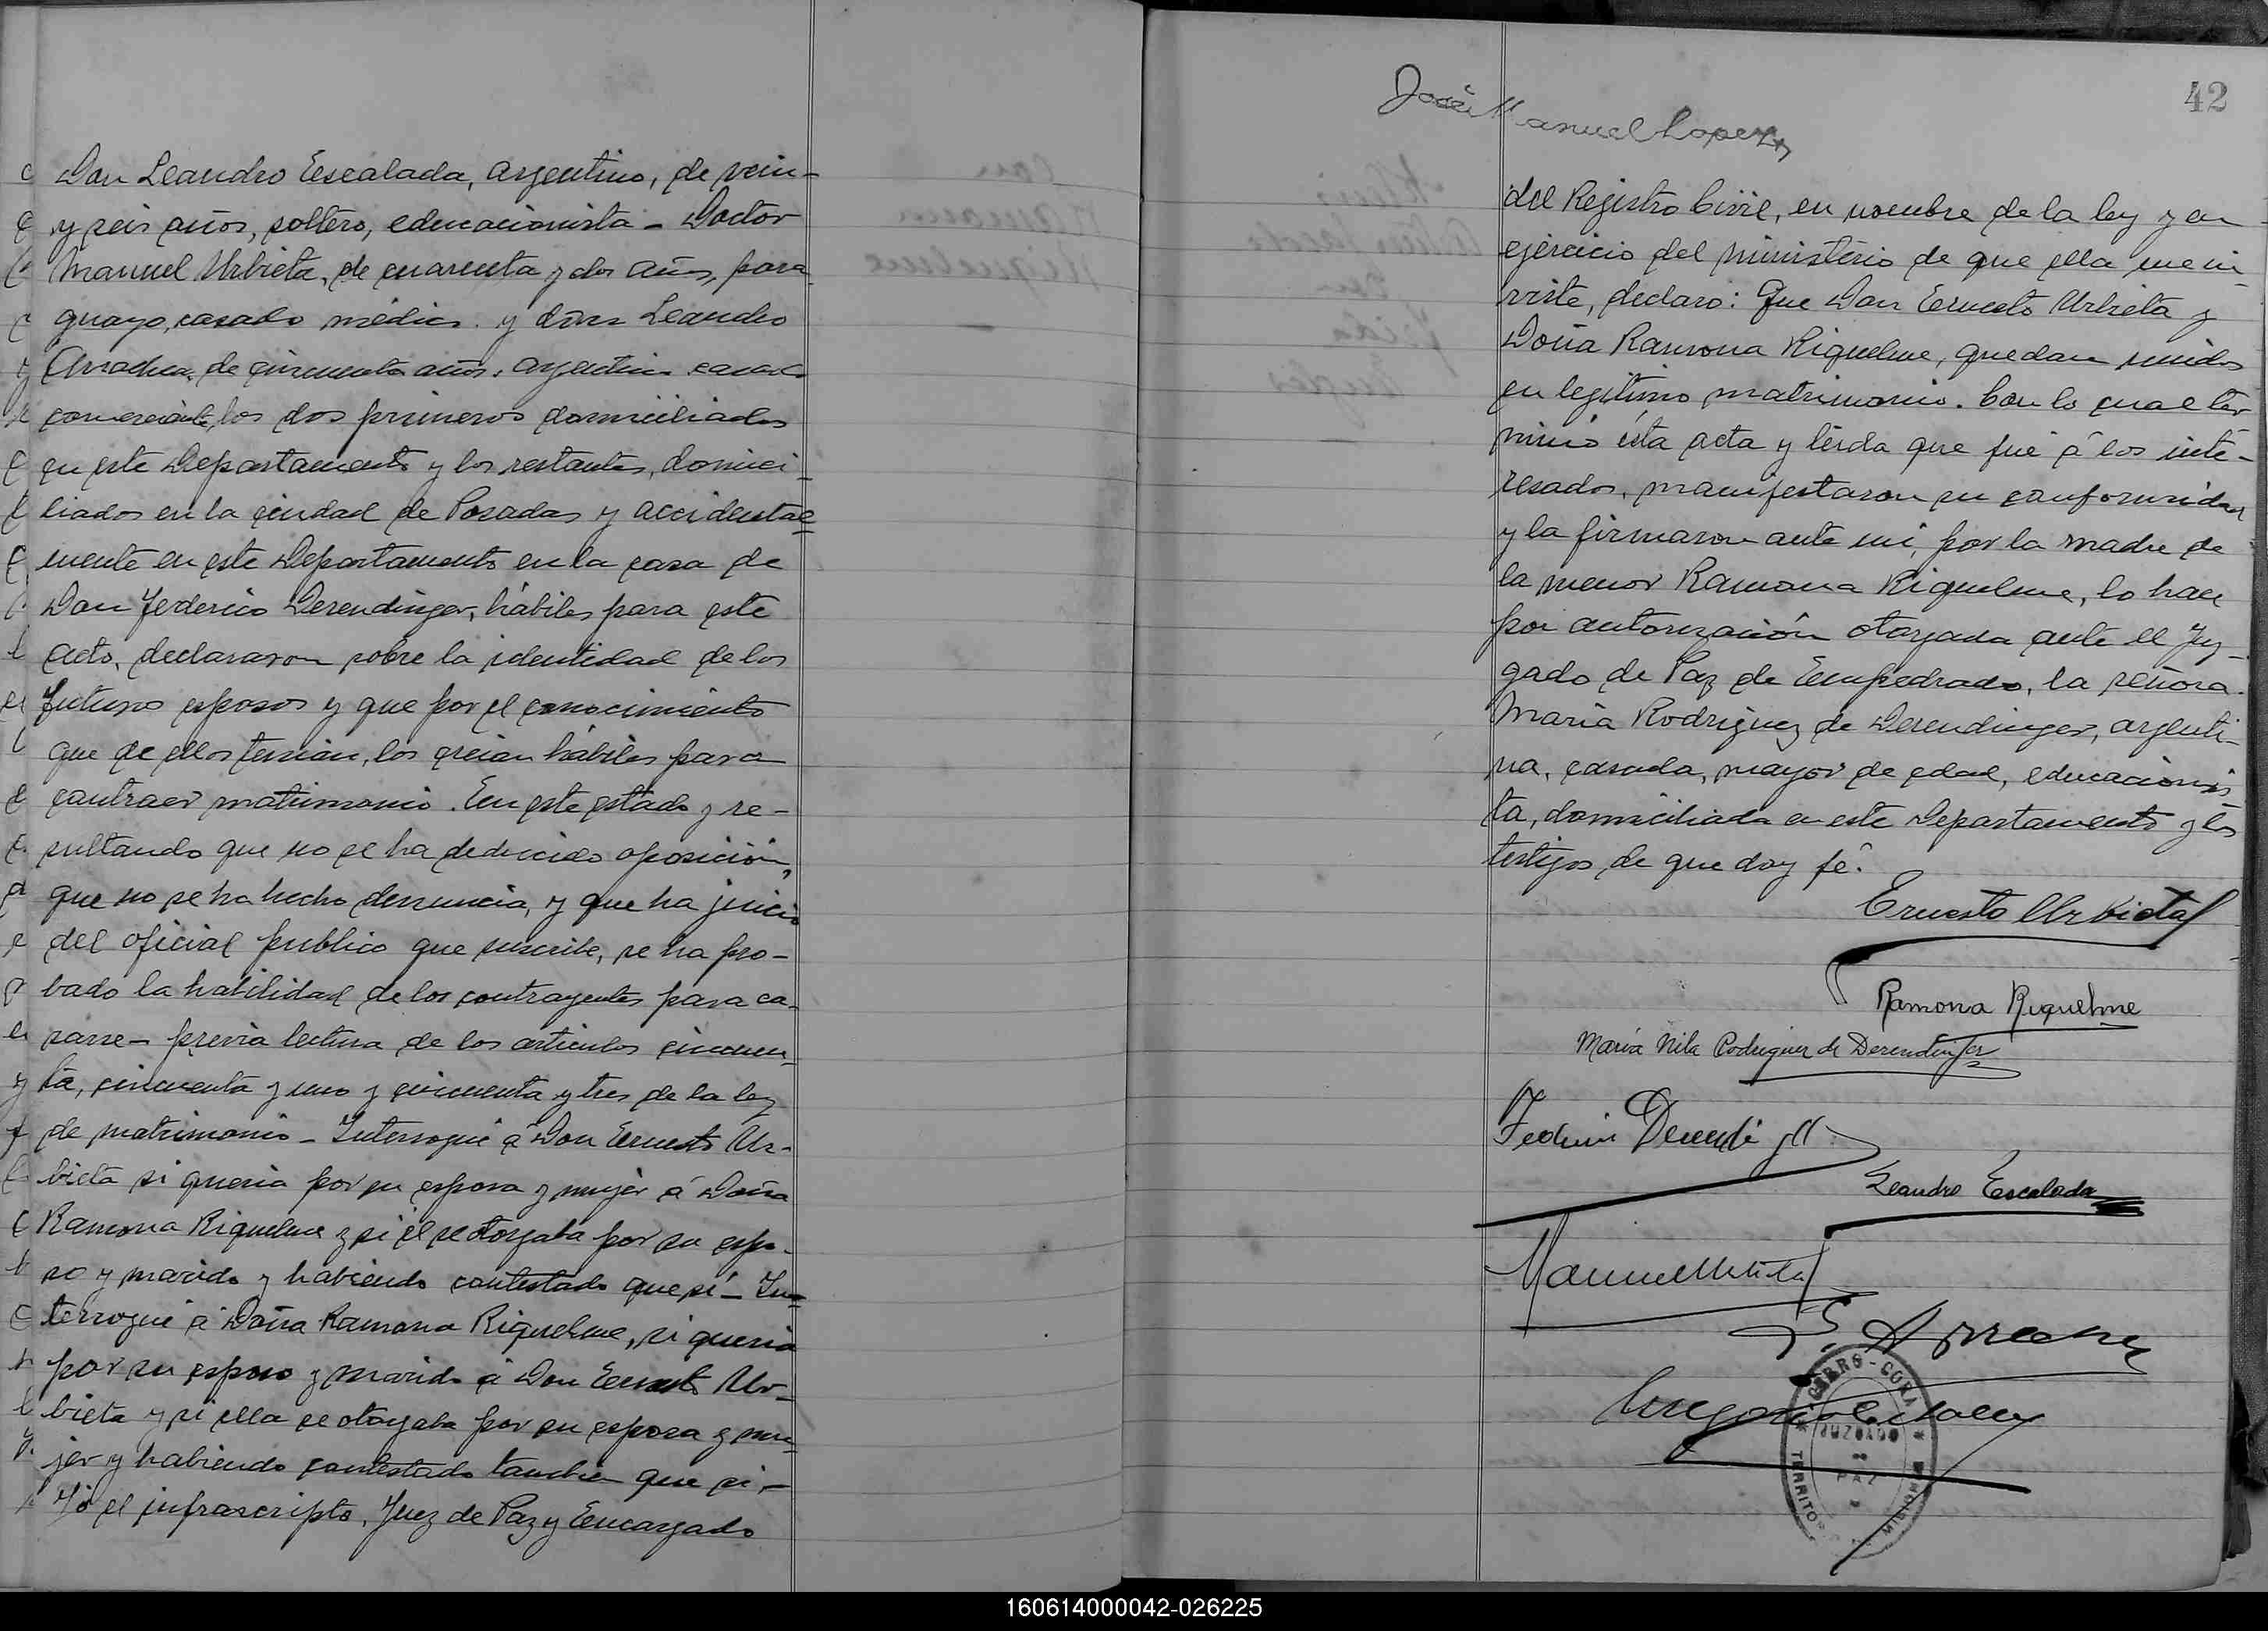 Don Leandro Escalada, argentino, de vein-
y seis años, soltero, educacionista - Doctor
Manuel Urbieta, de cuarenta y dos años, para
guayo, casado médico. y don Leandro
de cincuenta años, argentino casado
comerciante, los dos primeros domiciliados
en este Departamento y los restantes, domici-
liados en la ciudad de Posadas y accidental-
mente en este Departamento en la casa de
Don Federico Derendinger, hábiles para este
acto, declararon sobre la identidad de los
futuros esposos y que por el conocimiento
que de ellos tenian, los creian hábiles para
contraer matrimonio. En este estado y re-
sultando que no se ha deducido oposición,
que no se ha hecho denuncia, y que ha juicio
del oficial publico que suscribe, se ha pro-
bado la habilidad de los contrayentes para ca-
sarse - previa lectura de los articulos cincuen-
ta, cincuenta y uno y cincuenta y tres de la ley
de matrimonio - Interrogué á Don Ernesto Ur-
bieta si queria por su esposa y mujer á Doña
Ramona Riquelme y si él se otorgaba por su espo-
so y marido y habiendo contestado que sí - In-
terrogué á Doña Ramona Riquelme, si queria
por su esposo y marido á Don Ernesto Ur-
bieta y si ella se otorgaba por su esposa y mu-
jer y habiendo contestado tambien que si -
Yo el infrascripto, Juez de Paz y Encargado
42
José Manuel Lopez
del Registro Civil, en nombre de la ley y en
ejercicio del ministerio de que ella me in-
viste, declaro: Que Don Ernesto Urbieta y
Doña Ramona Riquelme, quedan unidos
en legitimo matrimonio. Con lo cual ter
minó ésta acta y leida que fué á los inte-
resados, manifestaron su conformidad
y la firmaron ante mi, por la madre de
la menor Ramona Riquelme, lo hace
por autorización otorgada ante el Juz-
gado de Paz de Empedrado, la señora
Maria Rodriguez de Derendinger, argenti-
na, casada, mayor de edad, educacionis
ta, domiciliada en este Departamento y los
testigos de que doy fé.
Ernesto Urbieta
Ramona Riquelme
María Nila Rodriguez de Derendinger
Leandro Escalada
Manuel Urbieta
CERRO-CORA
JUZGADO
PAZ
160614000042-026225